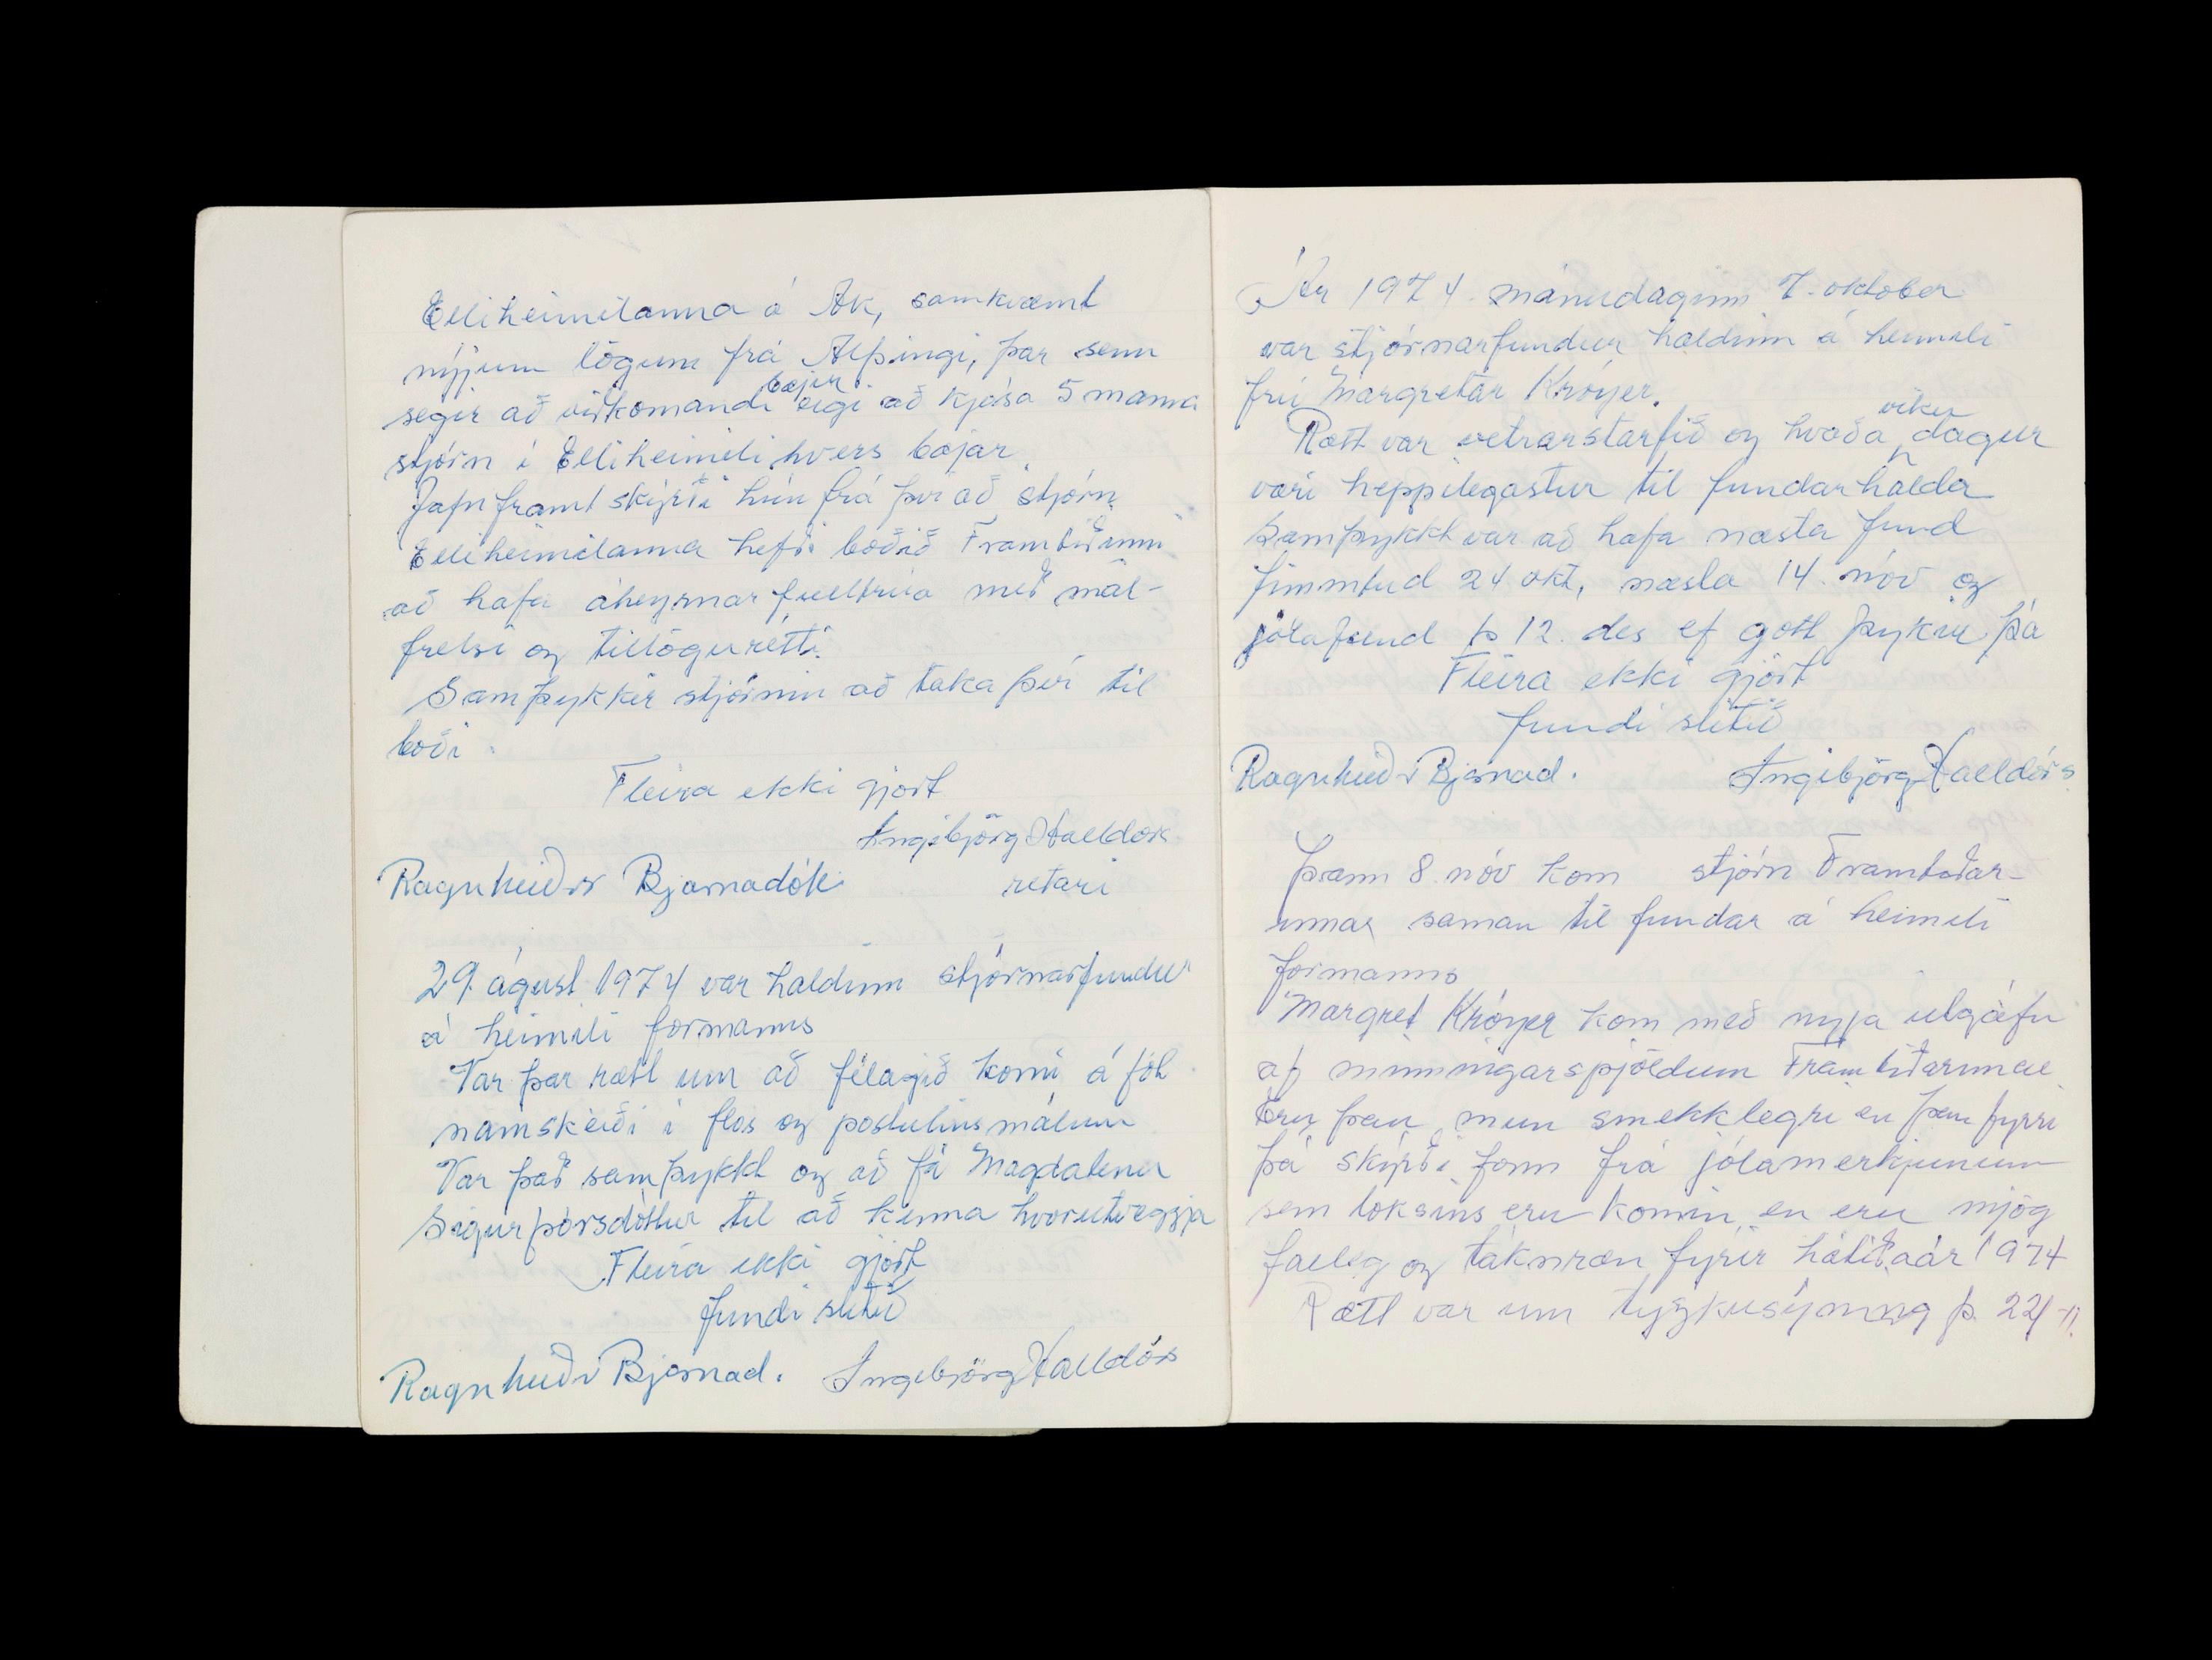 Elliheimilanna á Ak, samkvæmt
nýjum lögum frá Alþingi, þar sem
bæjir
segir að viðkomandi eigi að kjósa 5 manna
stjórn í Elliheimili hvers bæjar.
Jafnframt skýrði hún frá því að stjórn
Elliheimilanna hefði boðið Framtíðinni
að hafa áheyrnarfulltrúa með mál-
frelsi og tillögurétti.
Samþykkir stjórnin að taka því til
boði.
Fleira ekki gjört
Ingibjörg Halldórs
Ragnheiður Bjarnadótt.
ritari
29. ágúst 1974 var haldinn stjórnarfundur
á heimili formanns
Var þar rætt um að félagið komi á fót
námskeiði í flos og postulínsmálun
Var það samþykkt og að fá Magdalenu
Sigurþórsdóttur til að kenna hvorutveggja
Fleira ekki gjört
fundi slitið
Ragnheiður Bjarnad. Ingibjörg Halldórs
Ár 1974 mánudaginn 7. október
var stjórnarfundur haldinn á heimili
frú Margrétar Kröyer.
viku
Rætt var vetrarstarfið og hvaða dagur
væri heppilegastur til fundarhalda
Samþykkt var að hafa næsta fund
fimmtud 24 okt, næsta 14. nóv og
jólafund þ 12. des ef gott þykir þá
Fleira ekki gjört
fundi slitið
Ragnheiður Bjarnad. Ingibjörg Halldórs
Þann 8. nóv kom stjórn Framtíðar-
innar saman til fundar á heimili
formanns
Margret Kröyer kom með nyja útgáfu
af minningarspjöldum Framtíðarinnar
Eru þau mun smekklegri en þau fyrri
Þá skýrði form frá jólamerkjunum
sem loksins eru komin, en eru mjög
falleg og táknræn fyrir hátíðaár 1974
Rætt var um tyzkusýning þ. 22/11.